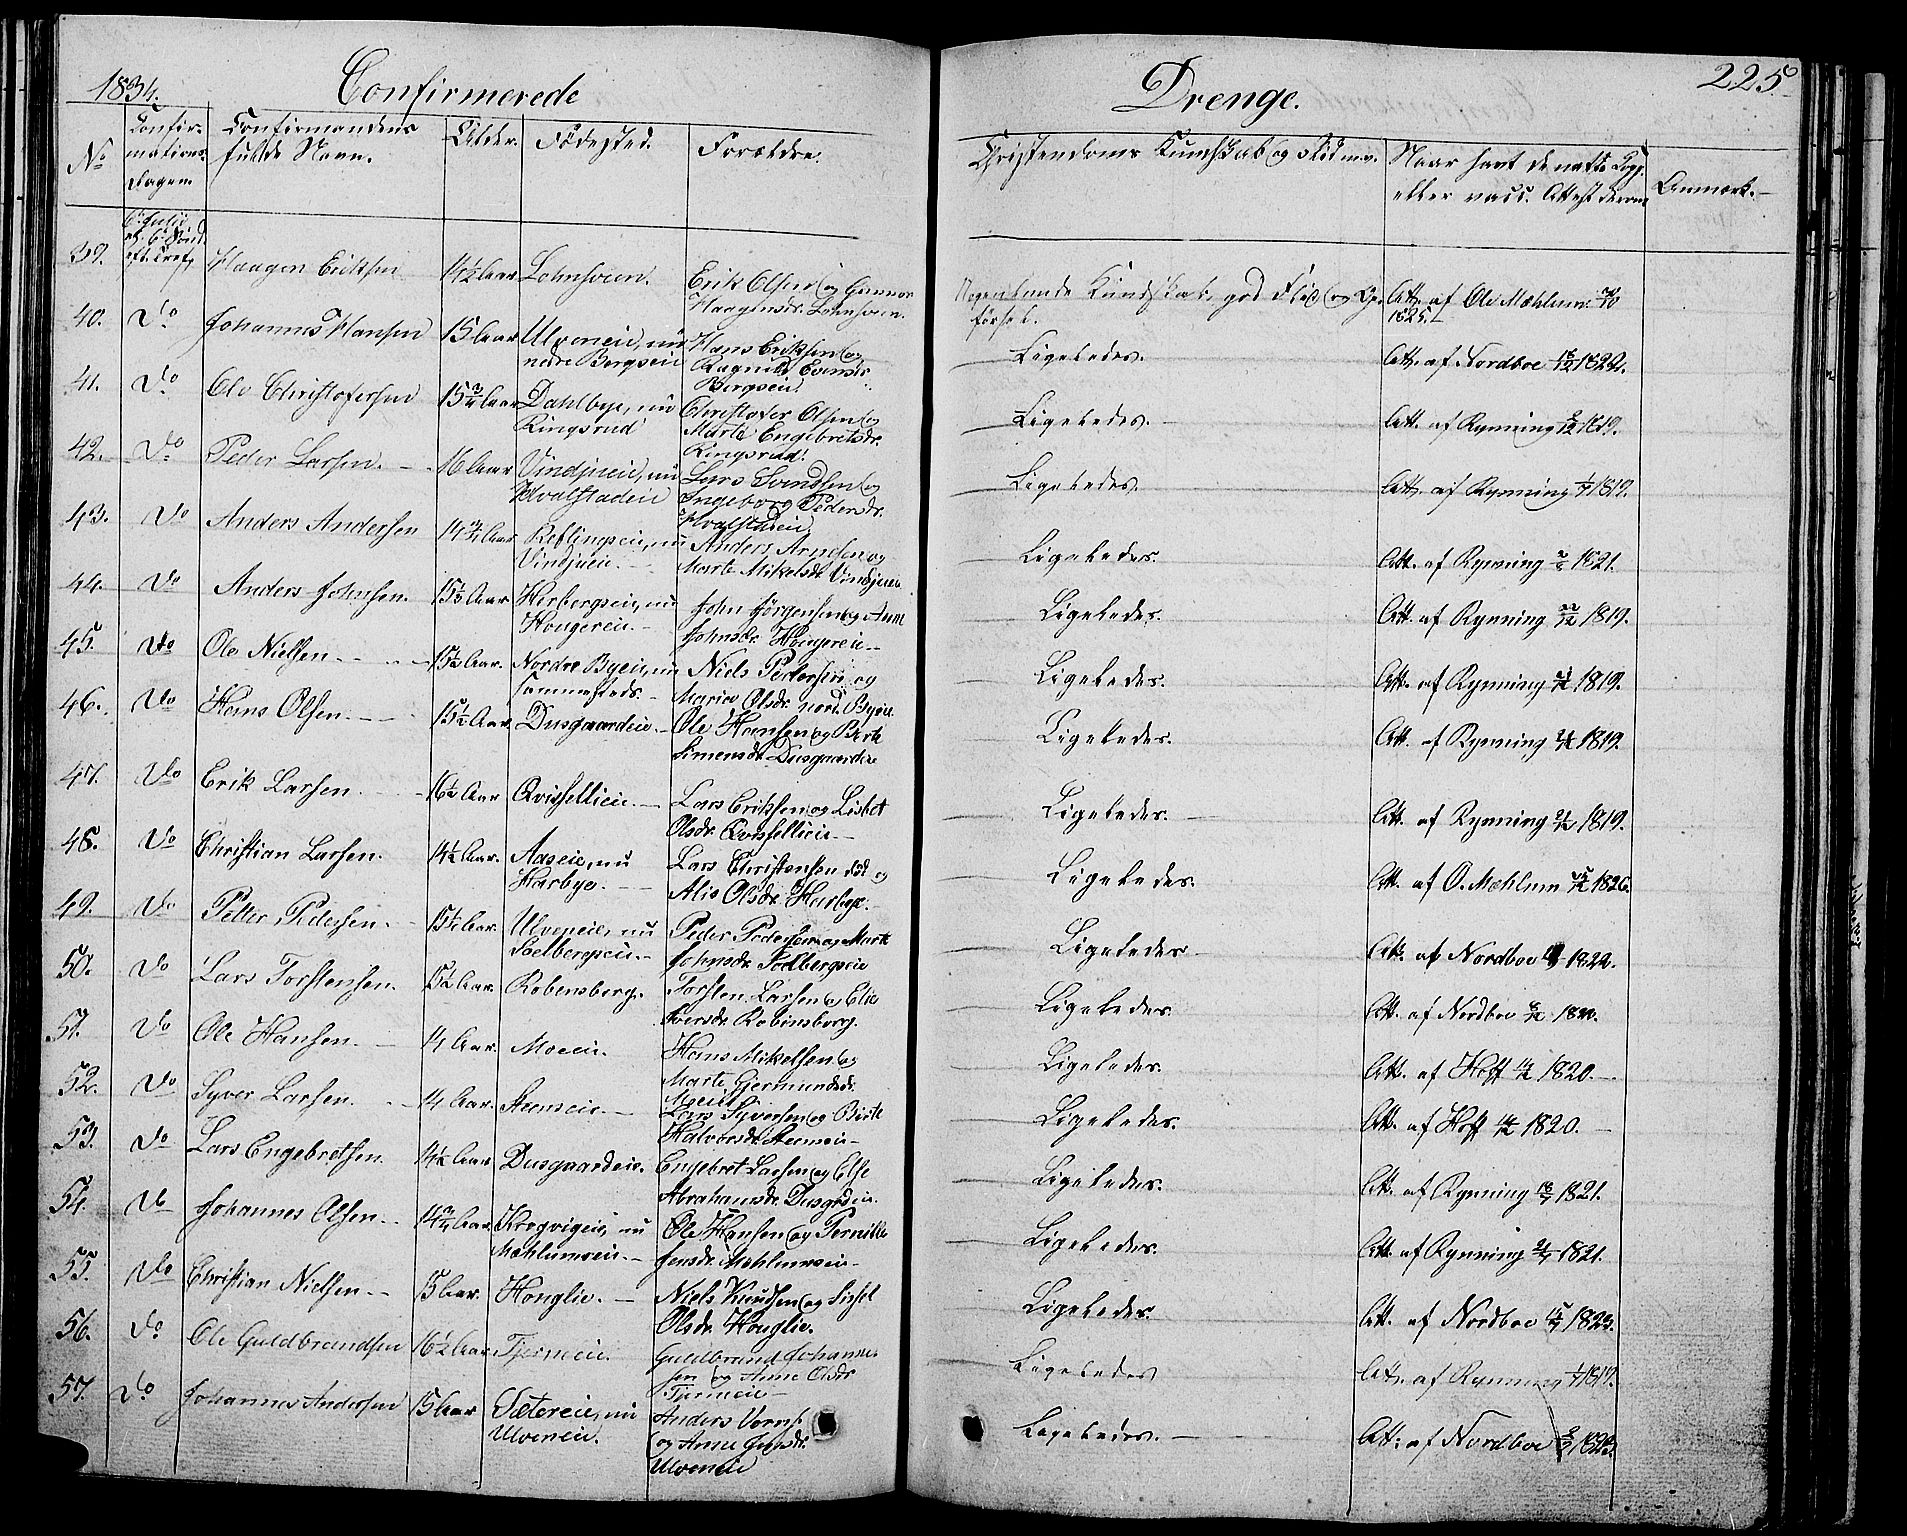 1834.
Confirmerede
Drenge.
225.
No
Confir-
mations-
dagen.
Confirmandens
fulde Navn.
Alder.
Födested.
Forældre.
Christendoms Kundskab og Flid m.v.
Naar havt de natt. Kopp.
eller vacc. Attest derom
Anmærk.
39. 6 Julii Haagen Eriksen 14½ Aar Lohnsveen. Erik Olsen og Gunnor
Haagensdr. Lohnsveen.
Kundskab, god Flid og Op-
førsel.
Att. af Ole Mæhlum
1825.
40. Do Johannes Hansen 15 Aar Ulveneie, nu
nedre Bergseie
Hans Eriksen og
Ragnild Evensdr.
Bergseie.
Ligeledes. Att. af Nordboe 1822.
41. Do Ole Christofersen 15¾ Aar Dahlbye, nu
Ringsrud
Christofer Olsen og
Marte Engebretsdr.
Ringsrud.
Ligeledes. Att. af Rynning 1819.
42. Do Peder Larsen. 16 Aar Vindjueie, nu
Hvalstadeie
Lars Svendsen og
Ingeborg Pedersdr.
Hvalstdeie.
Ligeledes. Att. af Rynning 1819.
43. Do Anders Andersen 14¾ Aar Reflingseie, nu
Vindjueie.
Anders Arnesen og
Marte Mikelsdr. Vindjueie
Ligeledes. Att. af Rynning 1821.
44. Do Anders Johnsen. Aar Herbergseie, nu
Hougereie.
John Jörgensen og Anne
Johnsdr. Hougereie
Ligeledes. Att. af Rynning 1819.
45. Do Ole Nielsen 15½ Aar. Nordre Byeie, nu
sammesteds.
Niels Pedersen og
Marie Olsdr. nord. Byeie
Ligeledes. Att. af Rynning 1819.
46. Do Hans Olsen. 15½ Aar. Dusgaardeie. Ole Hansen og Berte
Simensdr. Dusgaardeie
Ligeledes. Att. af Rynning 1819.
47. Do Erik Larsen. 16½ Aar Qvissellieie. Lars Eriksen og Lisbet
Olsdr. Qvissellieie
Ligeledes. Att. af Rynning 1819.
48. Do Christian Larsen. 14½ Aar. Aaseie, nu
Harbye.
Lars Christensen död og
Alis Olsdr. Harbye.
Ligeledes. Att. af O. Mæhlum 1826.
49. Do Petter Pedersen. 15½ Aar. Ulveneie, nu
Soelbergseie.
Peder Pedersen og Marte
Johnsdr. Soelbergseie
Ligeledes Att. af Nordboe 1822.
50. Do Lars Torstensen. 15½ Aar. Robensberg. Torsten Larsen og Elie
Iversdr. Robinsborg.
Ligeledes. Att. af Nordboe
51. Do Ole Hansen. 14 Aar. Moeeie. Hans Mikelsen og
Marte Gjermundsdr.
Moeeie
Ligeledes. Att. af Hoff 1820.
52. Do Syver Larsen. 14 Aar. Steenseie. Lars Syversen og Birte
Halvorsdr. Steenseie
Ligeledes. Att. af Hoff 1820.
53. Do Lars Engebretsen. 14½ Aar Dusgaardeie. Engebret Larsen og Else
Abrahamsdr. Dusgrdeie.
Ligeledes. Att. af Rynning 1821.
54. Do Johannes Olsen. 14¾ Aar. Krogvigeie, nu
Mæhlumseie.
Ole Hansen og Pernille
Jensdr. Mæhlumseie
Ligeledes. Att. af Rynning 1821.
55. Do Christian Nielsen. 15 Aar. Honglie. Niels Knudsen og Sissel
Olsdr. Honglie.
Ligeledes. Att. af Nordboe 1823.
56. Do Ole Guldbrandsen 16½ Aar Tjerneeie. Guldbrand Johanne-
sen og Anne Olsdr
Tjerneeie
Ligeledes Att. af Rynning 1819.
57. Do Johannes Andersen 15 Aar Sætereie, nu
Ulveneie.
Anders
og Anne Jensdr.
Ulveneie
Ligeledes. Att. af Nordboe 1823.